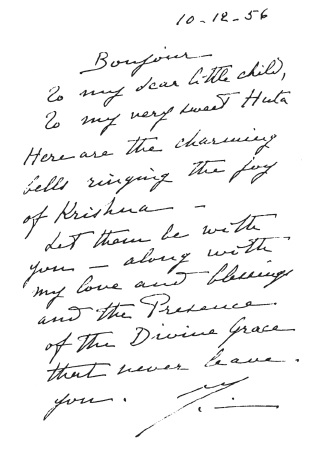 10-12-56
Bonjour
To my dear little child,
To my very sweet Huta
Here are the charming
bells ringing the joy
of Krishna -
Let them be with
you - along with
my love and blessings
and the Presence
of the Divine Grace
that never leave
you.